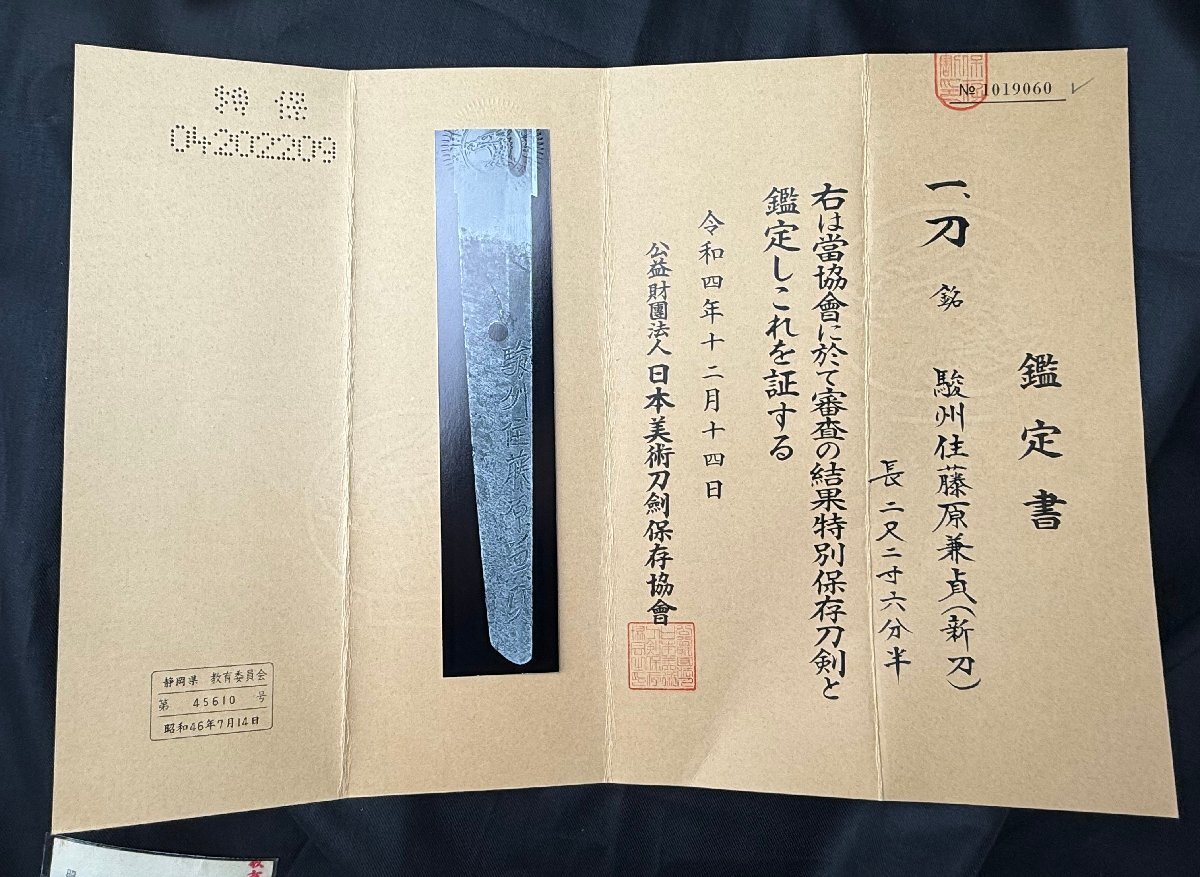 № 1019060
鑑定書
一、刀 銘 駿州住藤原兼貞(新刀)
長二尺二寸六分半
右は當協會に於て審査の結果特別保存刀剣と
鑑定しこれを証する
令和四年十二月十四日
公益財團法人日本美術刀劍保存協會
駿州住藤原兼貞
特保
04202209
静岡県 教育委員会
第 45610 号
昭和46年7月14日